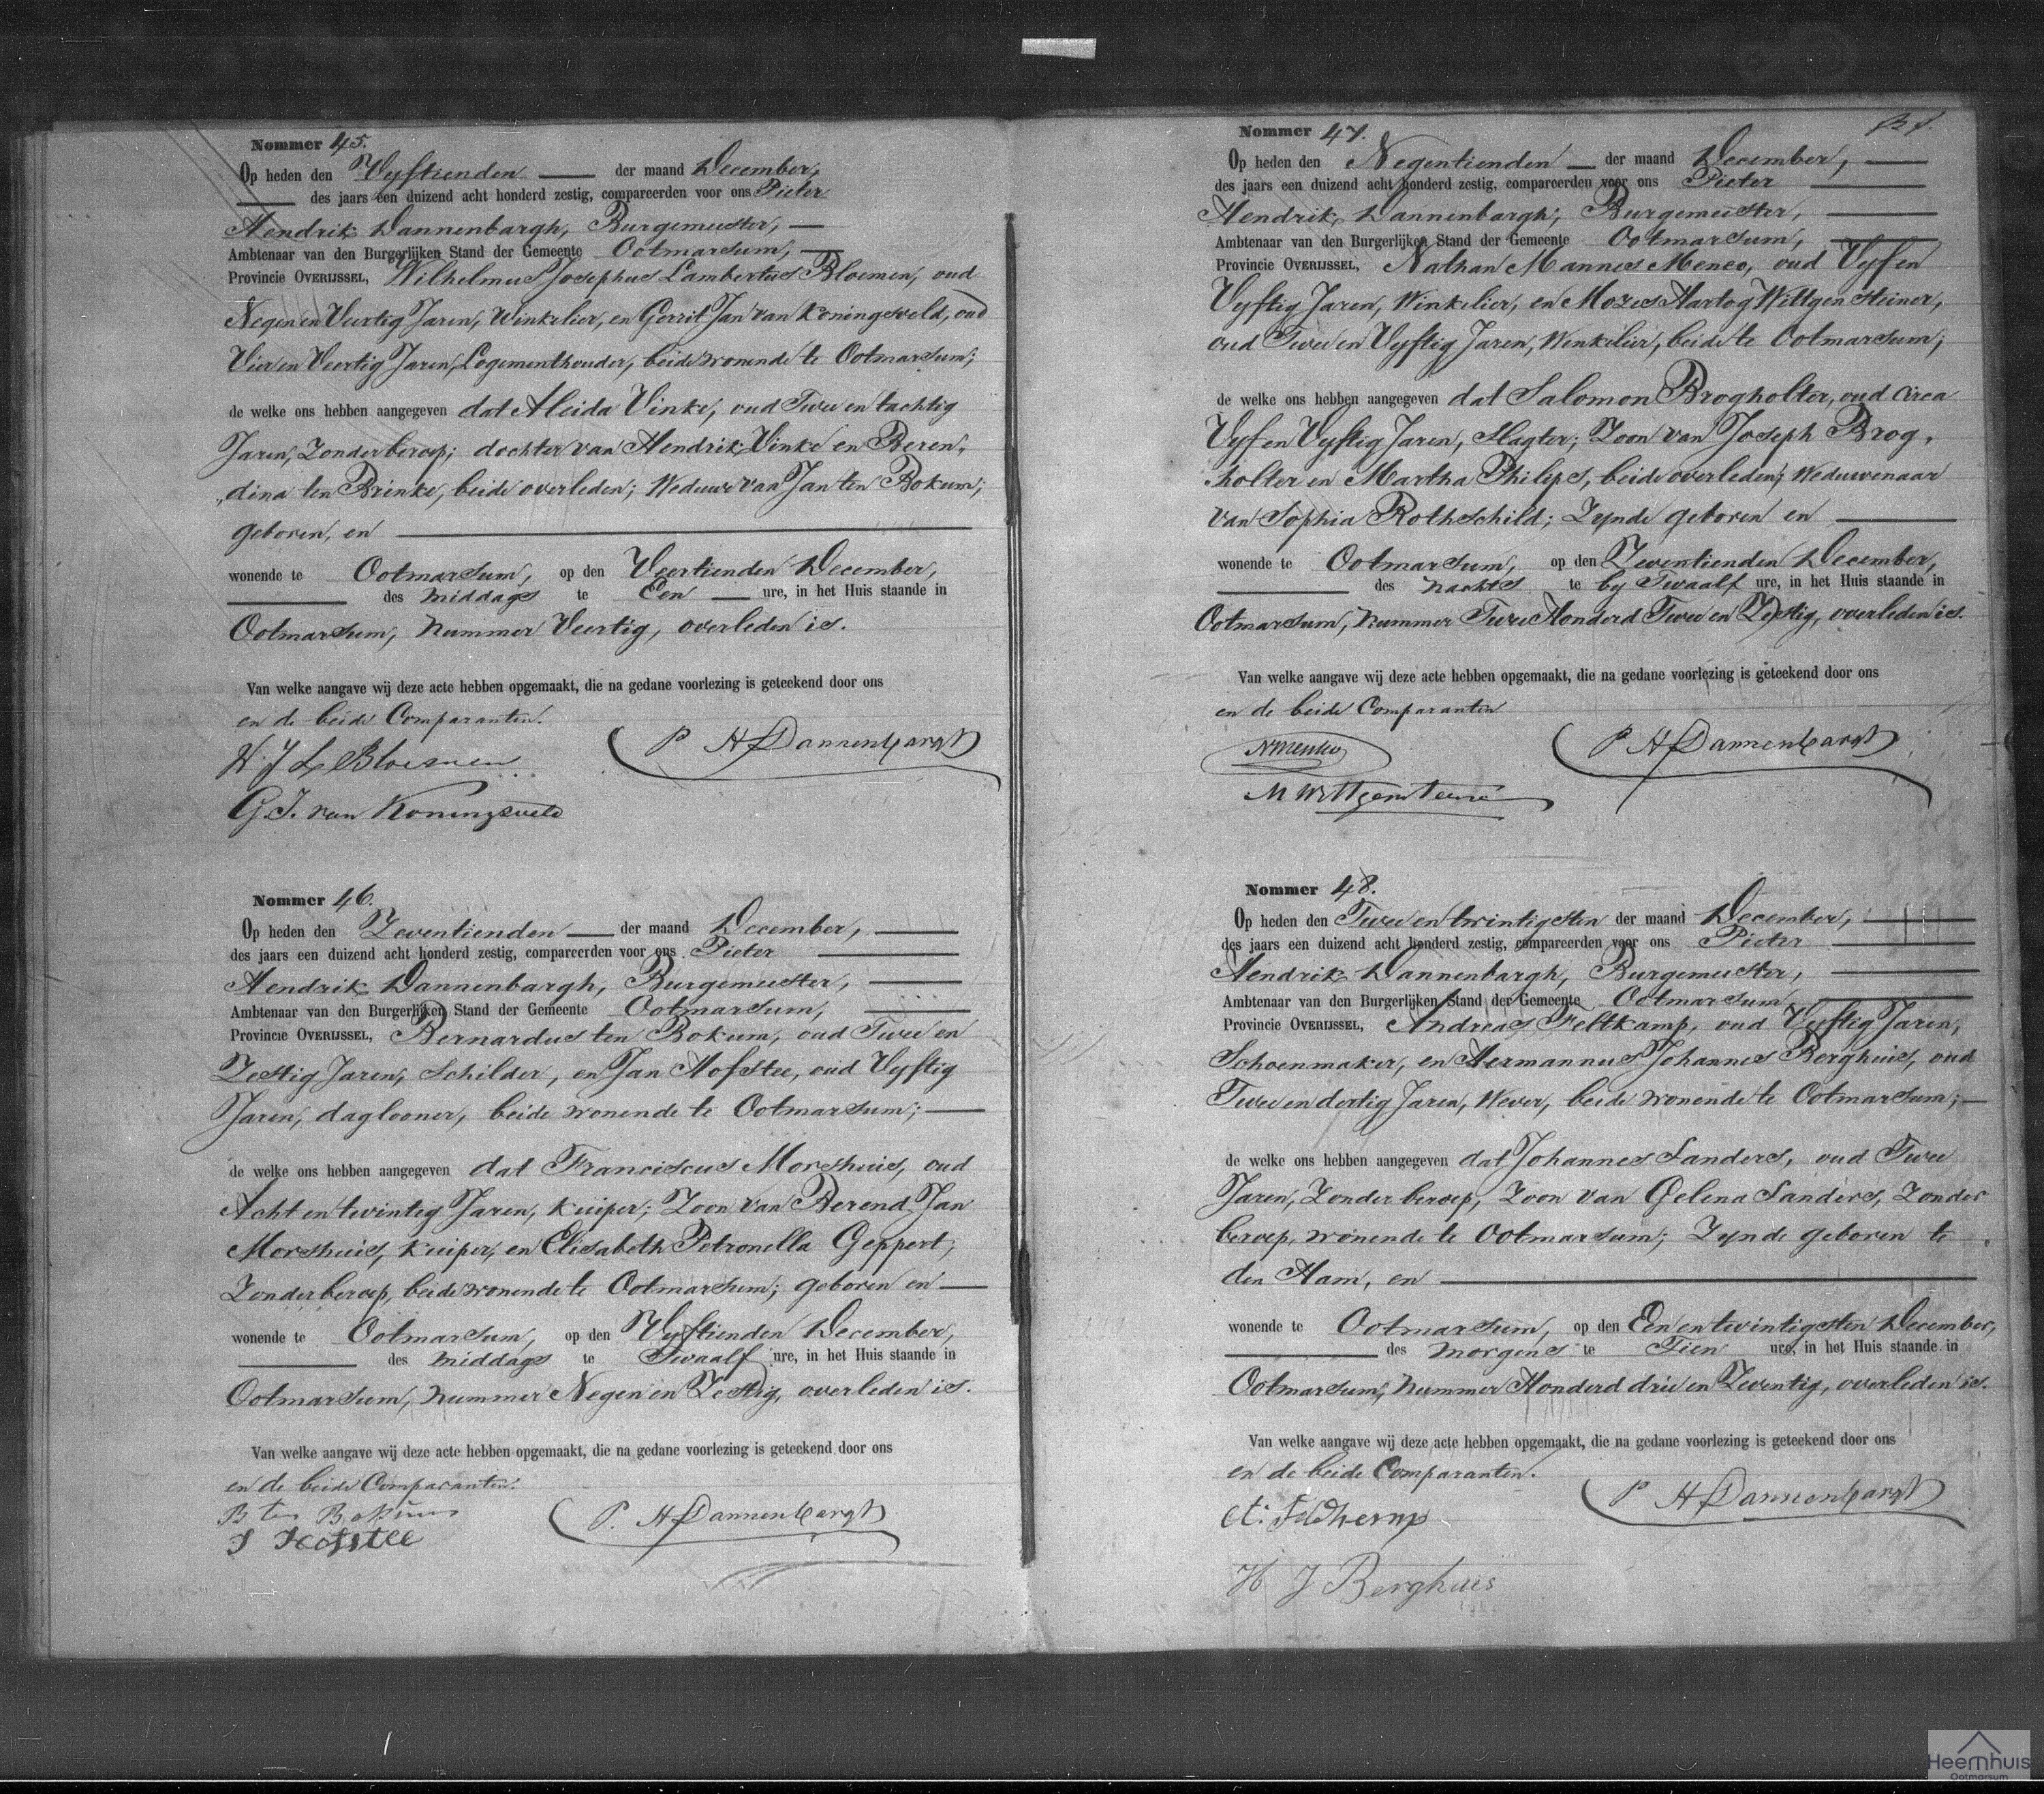 Nommer 45.
Op heden den Vyftienden der maand December,
des jaars een duizend acht honderd zestig, compareerden voor ons Pieter
Hendrik Dannenbargh, Burgemeester,
Ambtenaar van den Burgerlijken Stand der Gemeente Ootmarsum,
Provincie OVERIJSSEL, Wilhelmus Josephus Lambertus Bloemen, oud
Negen en Veertig Jaren, Winkelier, en Gerrit Jan van Koningsveld, oud
Vier en Veertig Jaren, Logementhouder, beide wonende te Ootmarsum;
de welke ons hebben aangegeven dat Aleida Vinke, oud Twee en tachtig
Jaren, Zonder beroep; dochter van Hendrik Vinke en Beren,
„dina ten Brinke, beide overleden; Weduwe van Jan ten Bokum;
geboren, en
wonende te Ootmarsum, op den Veertienden December,
des middags te Een ure, in het Huis staande in
Ootmarsum, nummer Veertig, overleden is.
Van welke aangave wij deze acte hebben opgemaakt, die na gedane voorlezing is geteekend door ons
en de beide Comparanten.
W. J. L. Bloemen
P H Dannenbargh
G. J. van Koningsveld
Nommer 46.
Op heden den Zeventienden der maand December,
des jaars een duizend acht honderd zestig, compareerden voor ons Pieter
Hendrik Dannenbargh, Burgemeester,
Ambtenaar van den Burgerlijken Stand der Gemeente Ootmarsum,
Provincie OVERIJSSEL, Bernardus ten Bokum, oud Twee en
Zestig Jaren, Schilder, en Jan Hofstee, oud Vyftig
Jaren, daglooner, beide wonende te Ootmarsum;
de welke ons hebben aangegeven dat Franciscus Morshuis, oud
Acht en twintig Jaren, kuiper; Zoon van Berend Jan
Morshuis, kuiper, en Elisabeth Petronella Geppert,
Zonder beroep, beide wonende te Ootmarsum; geboren en
wonende te Ootmarsum, op den Vyftienden December,
des middags te Twaalf ure, in het Huis staande in
Ootmarsum, nummer Negen en Zestig, overleden is.
Van welke aangave wij deze acte hebben opgemaakt, die na gedane voorlezing is geteekend door ons
en de beide Comparanten.
B ten Bokum
P. H Dannenbargh
J Hofstee
Nommer 47.
Op heden den Negentienden der maand December,
des jaars een duizend acht honderd zestig, compareerden voor ons Pieter
Hendrik Dannenbargh, Burgemeester,
Ambtenaar van den Burgerlijken Stand der Gemeente Ootmarsum,
Provincie OVERIJSSEL, Nathan Mannes Menco, oud Vyf en
Vyftig Jaren, Winkelier, en Mozes Hartog Wittgensteiner,
oud Twee en Vyftig Jaren, Winkelier, beide te Ootmarsum;
de welke ons hebben aangegeven dat Salomon Brogholter, oud circa
Vyf en Vyftig Jaren, Slagter; Zoon van Joseph Brog,
holter en Martha Philips, beide overleden; Weduwenaar
van Sophia Rothschild; Zynde geboren en
wonende te Ootmarsum, op den Zeventienden December,
des nachts te by Twaalf ure, in het Huis staande in
Ootmarsum, nummer Twee Honderd Twee en Zestig, overleden is.
Van welke aangave wij deze acte hebben opgemaakt, die na gedane voorlezing is geteekend door ons
en de beide Comparanten
NMenko
P H Dannenbargh
M Wittgensteiner
Nommer 48.
Op heden den Twee en twintigsten der maand December,
des jaars een duizend acht honderd zestig, compareerden voor ons Pieter
Hendrik Dannenbargh, Burgemeester,
Ambtenaar van den Burgerlijken Stand der Gemeente Ootmarsum,
Provincie OVERIJSSEL, Andreas Feltkamp, oud Vyftig Jaren,
Schoenmaker, en Hermannus Johannes Berghuis, oud
Twee en dertig Jaren, Wever, beide wonende te Ootmarsum;
de welke ons hebben aangegeven dat Johannes Sanders, oud Twee
Jaren, Zonder beroep, Zoon van Gelina Sanders, Zonder
beroep, wonende te Ootmarsum; Zynde geboren te
den Ham, en
wonende te Ootmarsum, op den Een en twintigsten December,
des morgens te Tien ure, in het Huis staande in
Ootmarsum, nummer Honderd drie en Zeventig, overleden is.
Van welke aangave wij deze acte hebben opgemaakt, die na gedane voorlezing is geteekend door ons
en de beide Comparanten.
P H Dannenbargh
A: Feldkemp
H J Berghuis
Heemhuis
Ootmarsum